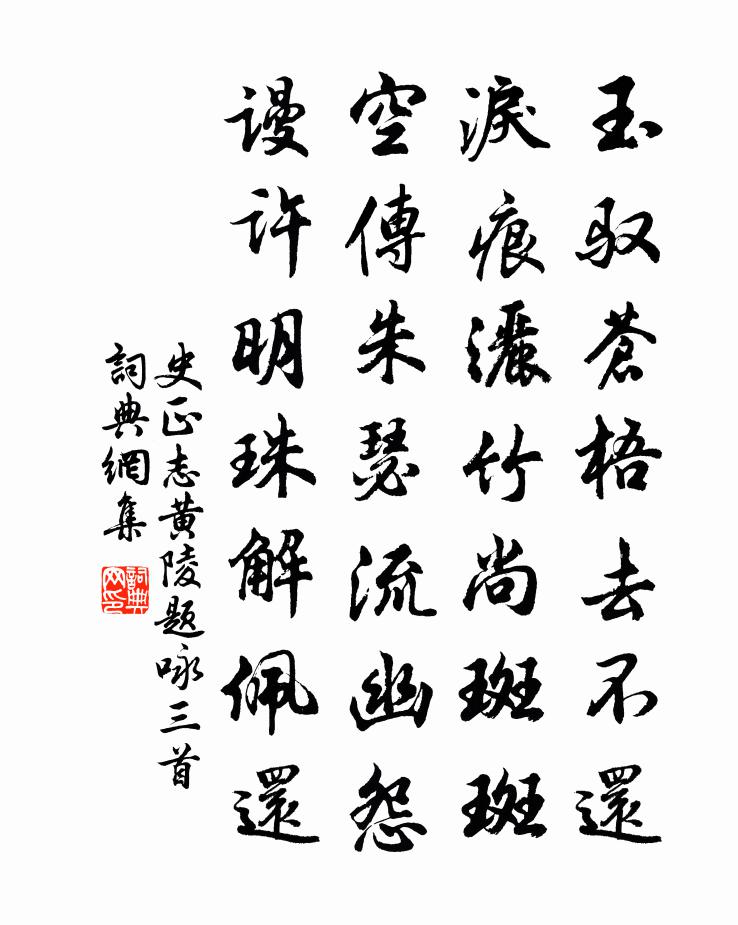 玉驭蒼梧去不還
淚痕灑竹尚斑斑
空傳朱瑟流幽怨
谩许明珠解佩還
史正志黄陵题咏三首
詞典網集
詞典網印